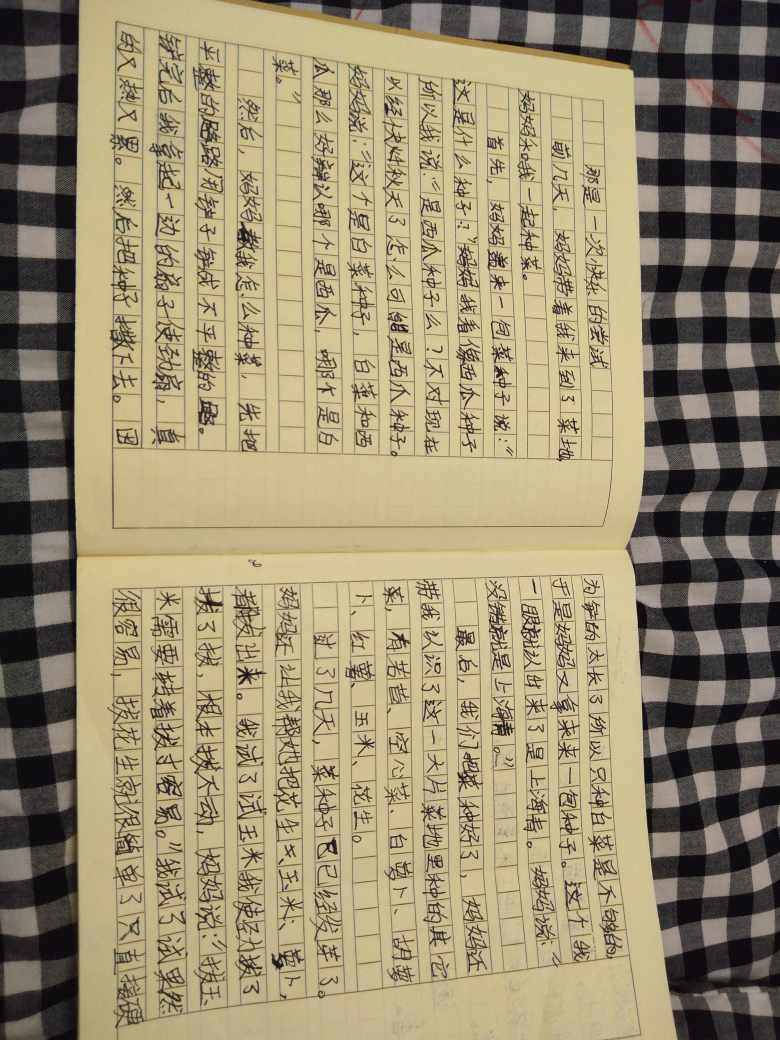 那是一次快乐的尝试
前几天，妈妈带着我来到了菜地
妈妈和我一起种菜。
首先，妈妈拿来一包菜种子说：“
这是什么种子？”妈妈我看像西瓜种子
所以我说：“是西瓜种子么？不对现在
以经快呌秋天了怎么可能是西瓜种子。
妈妈说：“这个是白菜种子，白菜和西
瓜那么好辩认哪个是西瓜，哪个是白
菜。”
然后，妈妈教我怎么种菜，先把
平整的路用锄子锄成不平整的。
锄完后我拿起一边的扇子使劲扇，真
的又热又累。然后把种子撒下去。因
为锄的太长了所以只种白菜是不够的
于是妈妈又拿来一包种子。这个我
一眼就认出来了是上海青。妈妈说：“
没错就是上海青。”
最后，我们把菜种好了，妈妈还
带我认识了这一大片菜地里种的其它
菜，有苦苣、空心菜、白萝卜、胡萝
卜、红薯、玉米、花生。
过了几天，菜种子已经发芽了。
妈妈还让我帮她把花生、玉米、萝卜，
都拔出来。我试了试玉米我使劲拔了
拔了拔，根本拔不动，妈妈说：“拔玉
米需要掰着拔才容易。”我试了试果然
很容易，拔花生就很简单了只直接硬